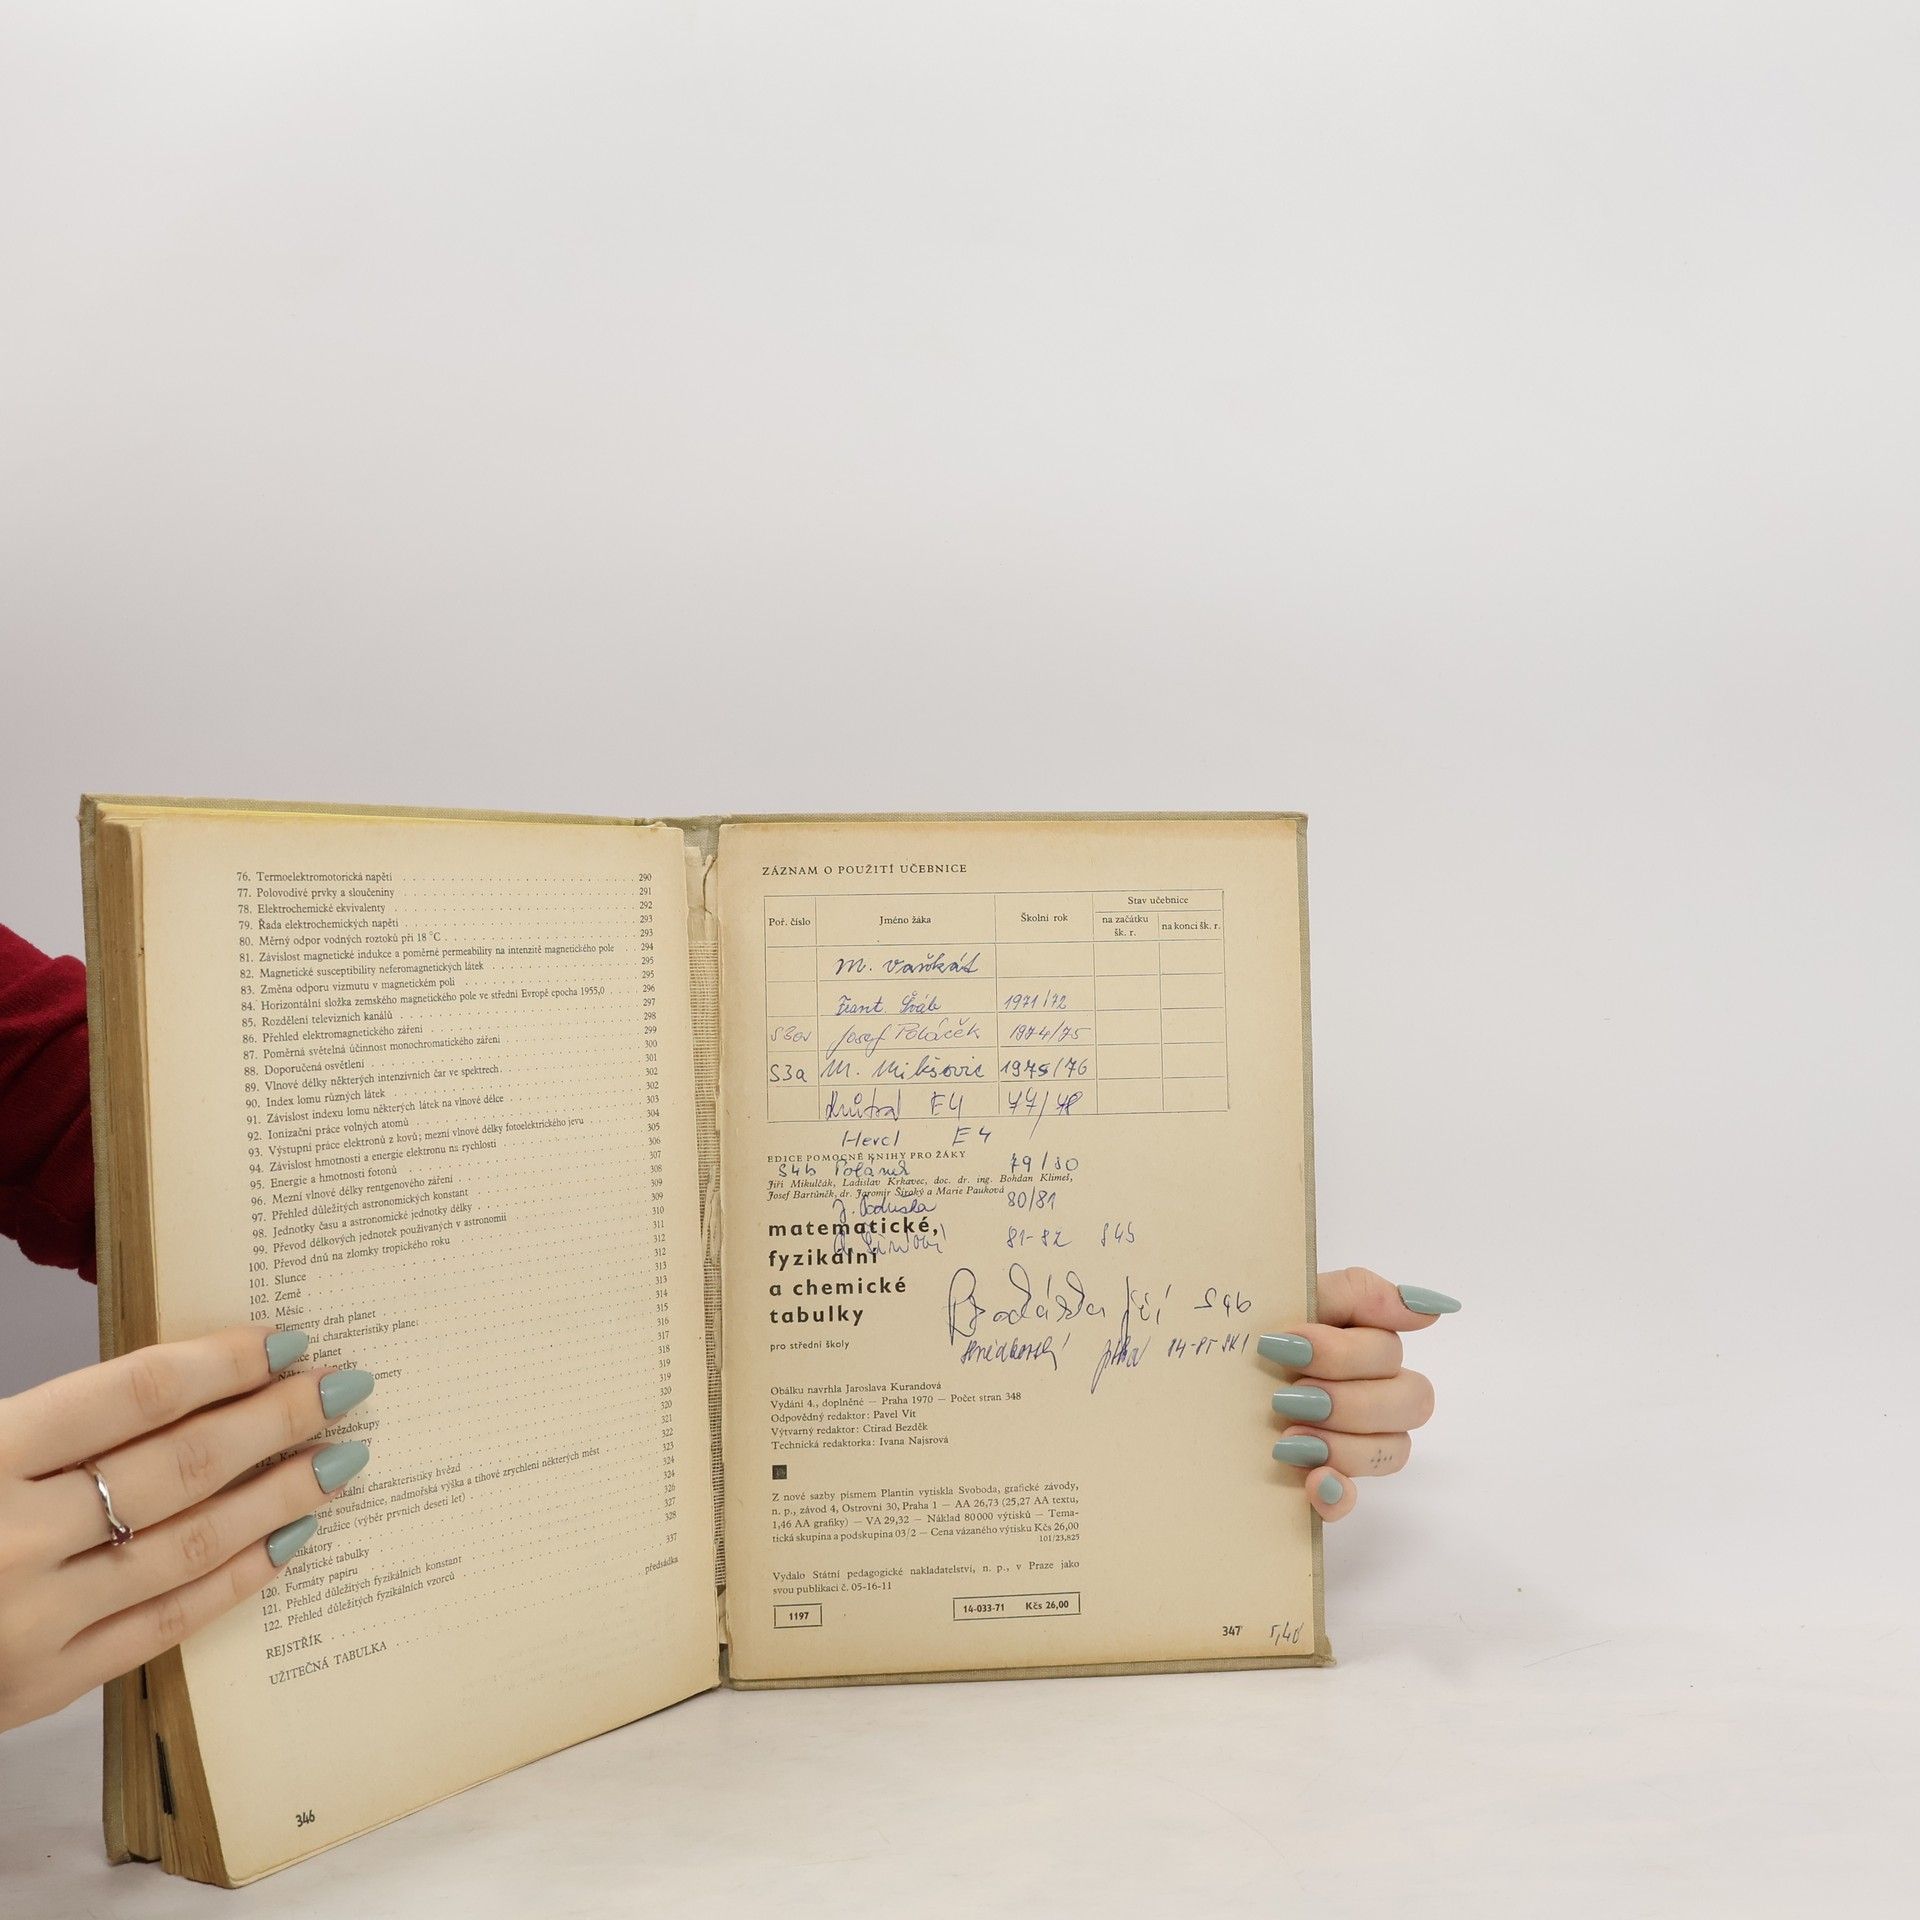 76. Termoelektromotorická napětí 290
77. Polovodivé prvky a sloučeniny 291
78. Elektrochemické ekvivalenty 292
79. Řada elektrochemických napětí 293
80. Měrný odpor vodných roztoků při 18 °C 293
81. Závislost magnetické indukce a poměrné permeability na intenzitě magnetického pole 294
82. Magnetické susceptibility neferomagnetických látek 295
83. Změna odporu vizmutu v magnetickém poli 295
84. Horizontální složka zemského magnetického pole ve střední Evropě epocha 1955,0 296
85. Rozdělení televizních kanálů 297
86. Přehled elektromagnetického záření 298
87. Poměrná světelná účinnost monochromatického záření 299
88. Doporučená osvětlení 300
89. Vlnové délky některých intenzivních čar ve spektrech 301
90. Index lomu různých látek 302
91. Závislost indexu lomu některých látek na vlnové délce 302
92. Ionizační práce volných atomů 303
93. Výstupní práce elektronů z kovů; mezní vlnové délky fotoelektrického jevu 304
94. Závislost hmotnosti a energie elektronu na rychlosti 305
95. Energie a hmotnosti fotonů 306
96. Mezní vlnové délky rentgenového záření 307
97. Přehled důležitých astronomických konstant 308
98. Jednotky času a astronomické jednotky délky 309
99. Převod délkových jednotek používaných v astronomii 309
100. Převod dnů na zlomky tropického roku 310
101. Slunce 311
102. Země 312
103. Měsíc 312
Elementy drah planet 313
charakteristiky planet 313
planet 314
315
316
317
318
hvězdokupy 319
112. 319
320
charakteristiky hvězd 320
souřadnice, nadmořská výška a tíhové zrychlení některých měst 321
družice (výběr prvních deseti let) 322
323
Analytické tabulky 324
120. Formáty papíru 324
121. Přehled důležitých fyzikálních konstant 326
122. Přehled důležitých fyzikálních vzorců 327
328
REJSTŘÍK 337
UŽITEČNÁ TABULKA předsádka
346
ZÁZNAM O POUŽITÍ UČEBNICE
Poř. číslo Jméno žáka Školní rok Stav učebnice
na začátku šk. r. na konci šk. r.
M. Vaňkát
Frant. Šváb 1971/72
S3a Josef Poláček 1974/75
S3a M. Mikšovic 1975/76
E4 77/78
Hercl E4
EDICE POMOCNÉ KNIHY PRO ŽÁKY
S4b 79/80
Jiří Mikulčák, Ladislav Krkavec, doc. dr. ing. Bohdan Klimeš,
Josef Bartůněk, dr. Jaromír Široký a Marie Pauková
J. 80/81
matematické,
81-82 S4b
fyzikální
a chemické
tabulky
Jiří S4b
pro střední školy
Obálku navrhla Jaroslava Kurandová
Vydání 4., doplněné — Praha 1970 — Počet stran 348
Odpovědný redaktor: Pavel Vít
Výtvarný redaktor: Ctirad Bezděk
Technická redaktorka: Ivana Najsrová
Z nové sazby písmem Plantin vytiskla Svoboda, grafické závody,
n. p., závod 4, Ostrovní 30, Praha 1 — AA 26,73 (25,27 AA textu,
1,46 AA grafiky) — VA 29,32 — Náklad 80 000 výtisků — Tema-
tická skupina a podskupina 03/2 — Cena vázaného výtisku Kčs 26,00
101/23,825
Vydalo Státní pedagogické nakladatelství, n. p., v Praze jako
svou publikaci č. 05-16-11
1197
14-033-71 Kčs 26,00
347
5,40